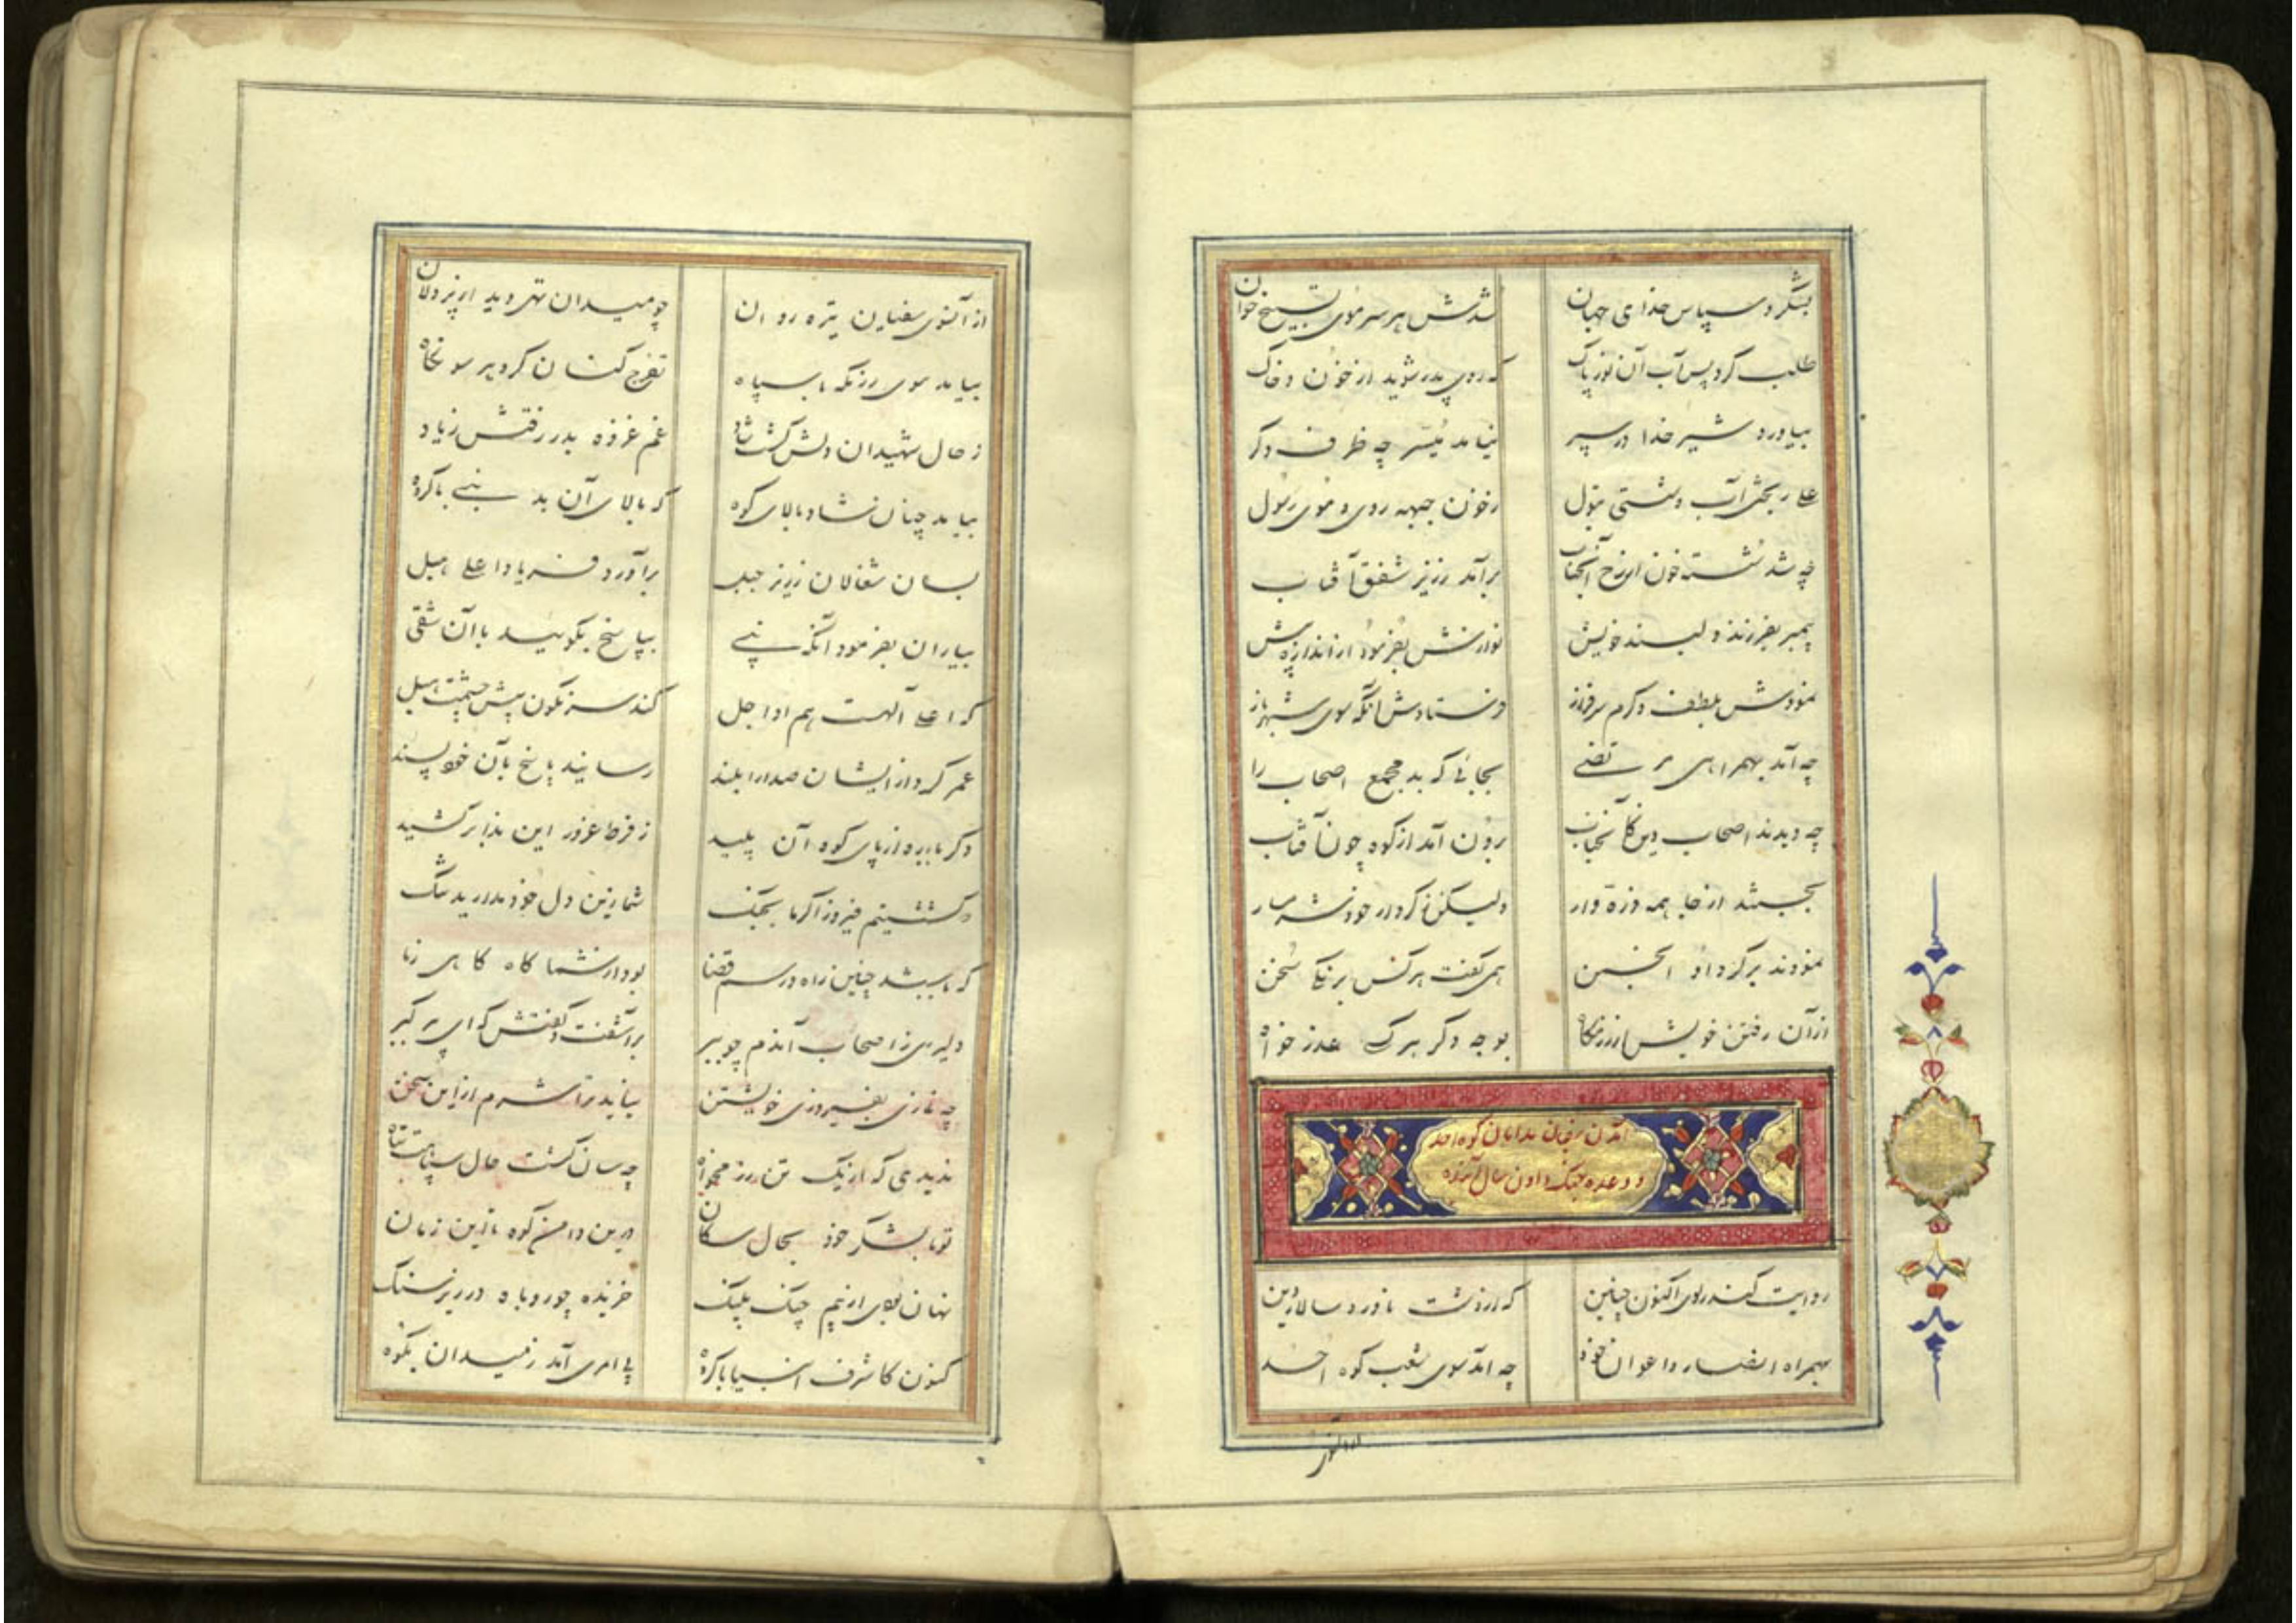 بشکر و سپاس خدای جهان شدش هر سر موی تسبیح خوان
طلب کرد پس آب آن نور پاک که روی پدر شوید از خون و خاک
بیاورد شیر خدا در سپر نیامد میسر چه ظرف دکر
علی ریختی آب و شستی بتول ز خون جبهه روی و موی رسول
چه شد شسته خون از رخ آنجناب برآمد ز زیر شفق آفتاب
پیمبر بفرزند دلبند خویش نوازش بفرمود ز اندازه بیش
نمودش بلطف و کرم سرفراز فرستادش آنکه سوی شهر باز
چه آمد بهمراهی مرتضی بجائی که بد مجمع اصحاب را
چه دیدند اصحاب دین کانجناب برون آمد از کوه چون آفتاب
بجستند از جا همه ذره وار ولیکن ز کردار خود شرمسار
نمودند بر کرد او انجمن همی کفت هر کس برنکی سخن
از آن رفتن خویش از رزمکاه بوجه دکر هر یک عذر خواه
آمدن سفیان بدامان کوه احد
و وعده جنک دادن سال آینده
روایت کند راوی اکنون چنین که از دشت ناورد سالار دین
بهمراه انصار و اعوان خود چه آمد سوی شعب کوه احد
از آنسوی
از آنسوی سفیان تیره روان چو میدان تهی دید از پردلان
بیامد سوی رزمکه با سپاه تفرج کنان کرد هر سو نکاه
ز حال شهیدان دلش کشت شاد غم غزوه بدر رفتش ز یاد
بیامد چنان شاد بالای کوه که بالای آن بد نبی با کروه
بسان شغالان ز زیر جبل برآورد فریاد اعلی هبل
بیاران بفرمود آنکه نبی بپاسخ بکوئید با آن شقی
که اعلی آلهست هم او اجل کند سرنکون پیش چشمت هبل
عمر کرد از ایشان صدا را بلند رسانید پاسخ بآن خودپسند
دکرباره از پای کوه آن پلید ز فرط غرور این ندا برکشید
که کشتیم فیروز اکر ما بجنک شما زین دل خود مدارید تنک
که باشد چنین راه و رسم قضا بود از شما کاه کاهی ز ما
دلیری ز اصحاب آندم چو ببر برآشفت و کفتش که ای پیر کبر
چه نازی بفیروزی خویشتن نیاید ترا شرم از این سخن
ندیدی که از یک تن رزمخواه چه سان کشت حال سپاهت تباه
تو با لشکر خود بحال سکان درین دامن کوه تا این زمان
نهان بودی از بیم جنک پلنک خزیده چو روباه در زیر سنک
کنون کاشرف انبیا با کروه پی امری آمد ز میدان بکوه